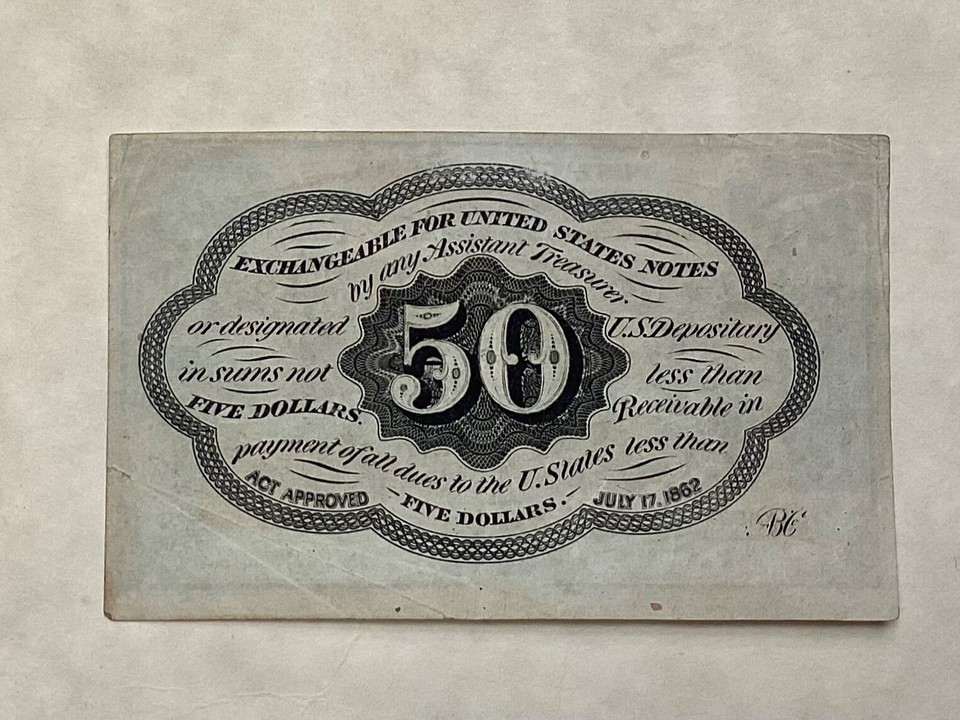 EXCHANGEABLE FOR UNITED STATES NOTES
by any Assistant Treasurer
or designated U.S. Depositary
in sums not less than
FIVE DOLLARS. Receivable in
payment of all dues to the U. States less than
FIVE DOLLARS.
ACT APPROVED JULY 17, 1862
50